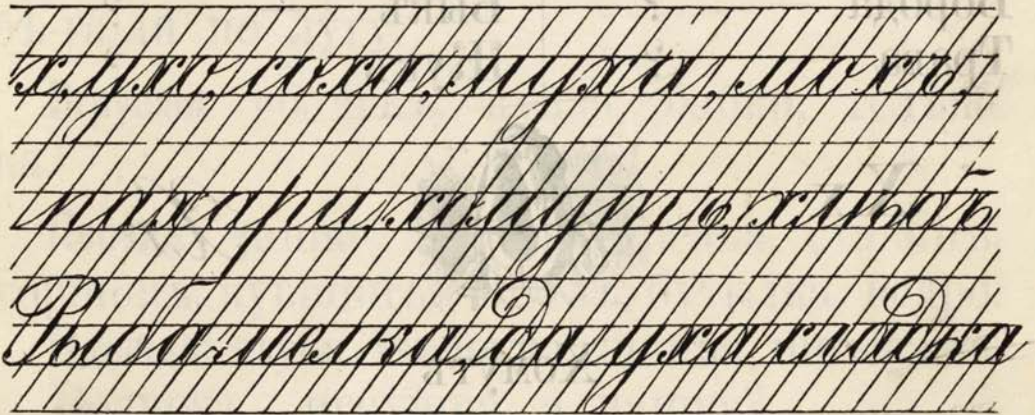 х, ухо, соха, муха, мохъ,
пахари, хомутъ, хлѣбъ
Рыба мелка, да уха сладка